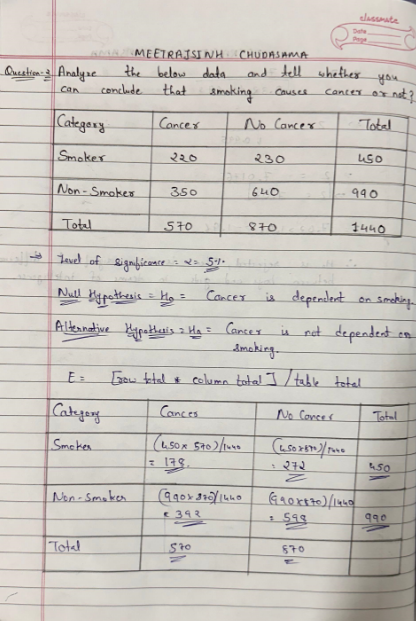 classmate
Date
Page
MEETRAJSINH CHUDASAMA
Question-3 Analyze the below data and tell whether you
can conclude that smoking causes cancer or not?
Category Cancer No Cancer Total
Smoker 220 230 450
Non-Smoker 350 640 990
Total 570 870 1440
→ Level of significance = α = 5%
Null Hypothesis = H₀ = Cancer is dependent on smoking.
Alternative Hypothesis = Ha = Cancer is not dependent on
smoking.
E = [row total * column total] / table total
Category Cancer No Cancer Total
Smoker (450 x 570)/1440 (450x870)/1440
= 178 = 272 450
Non-Smoker (990x570)/1440 (990x870)/1440
= 392 = 598 990
Total 570 870